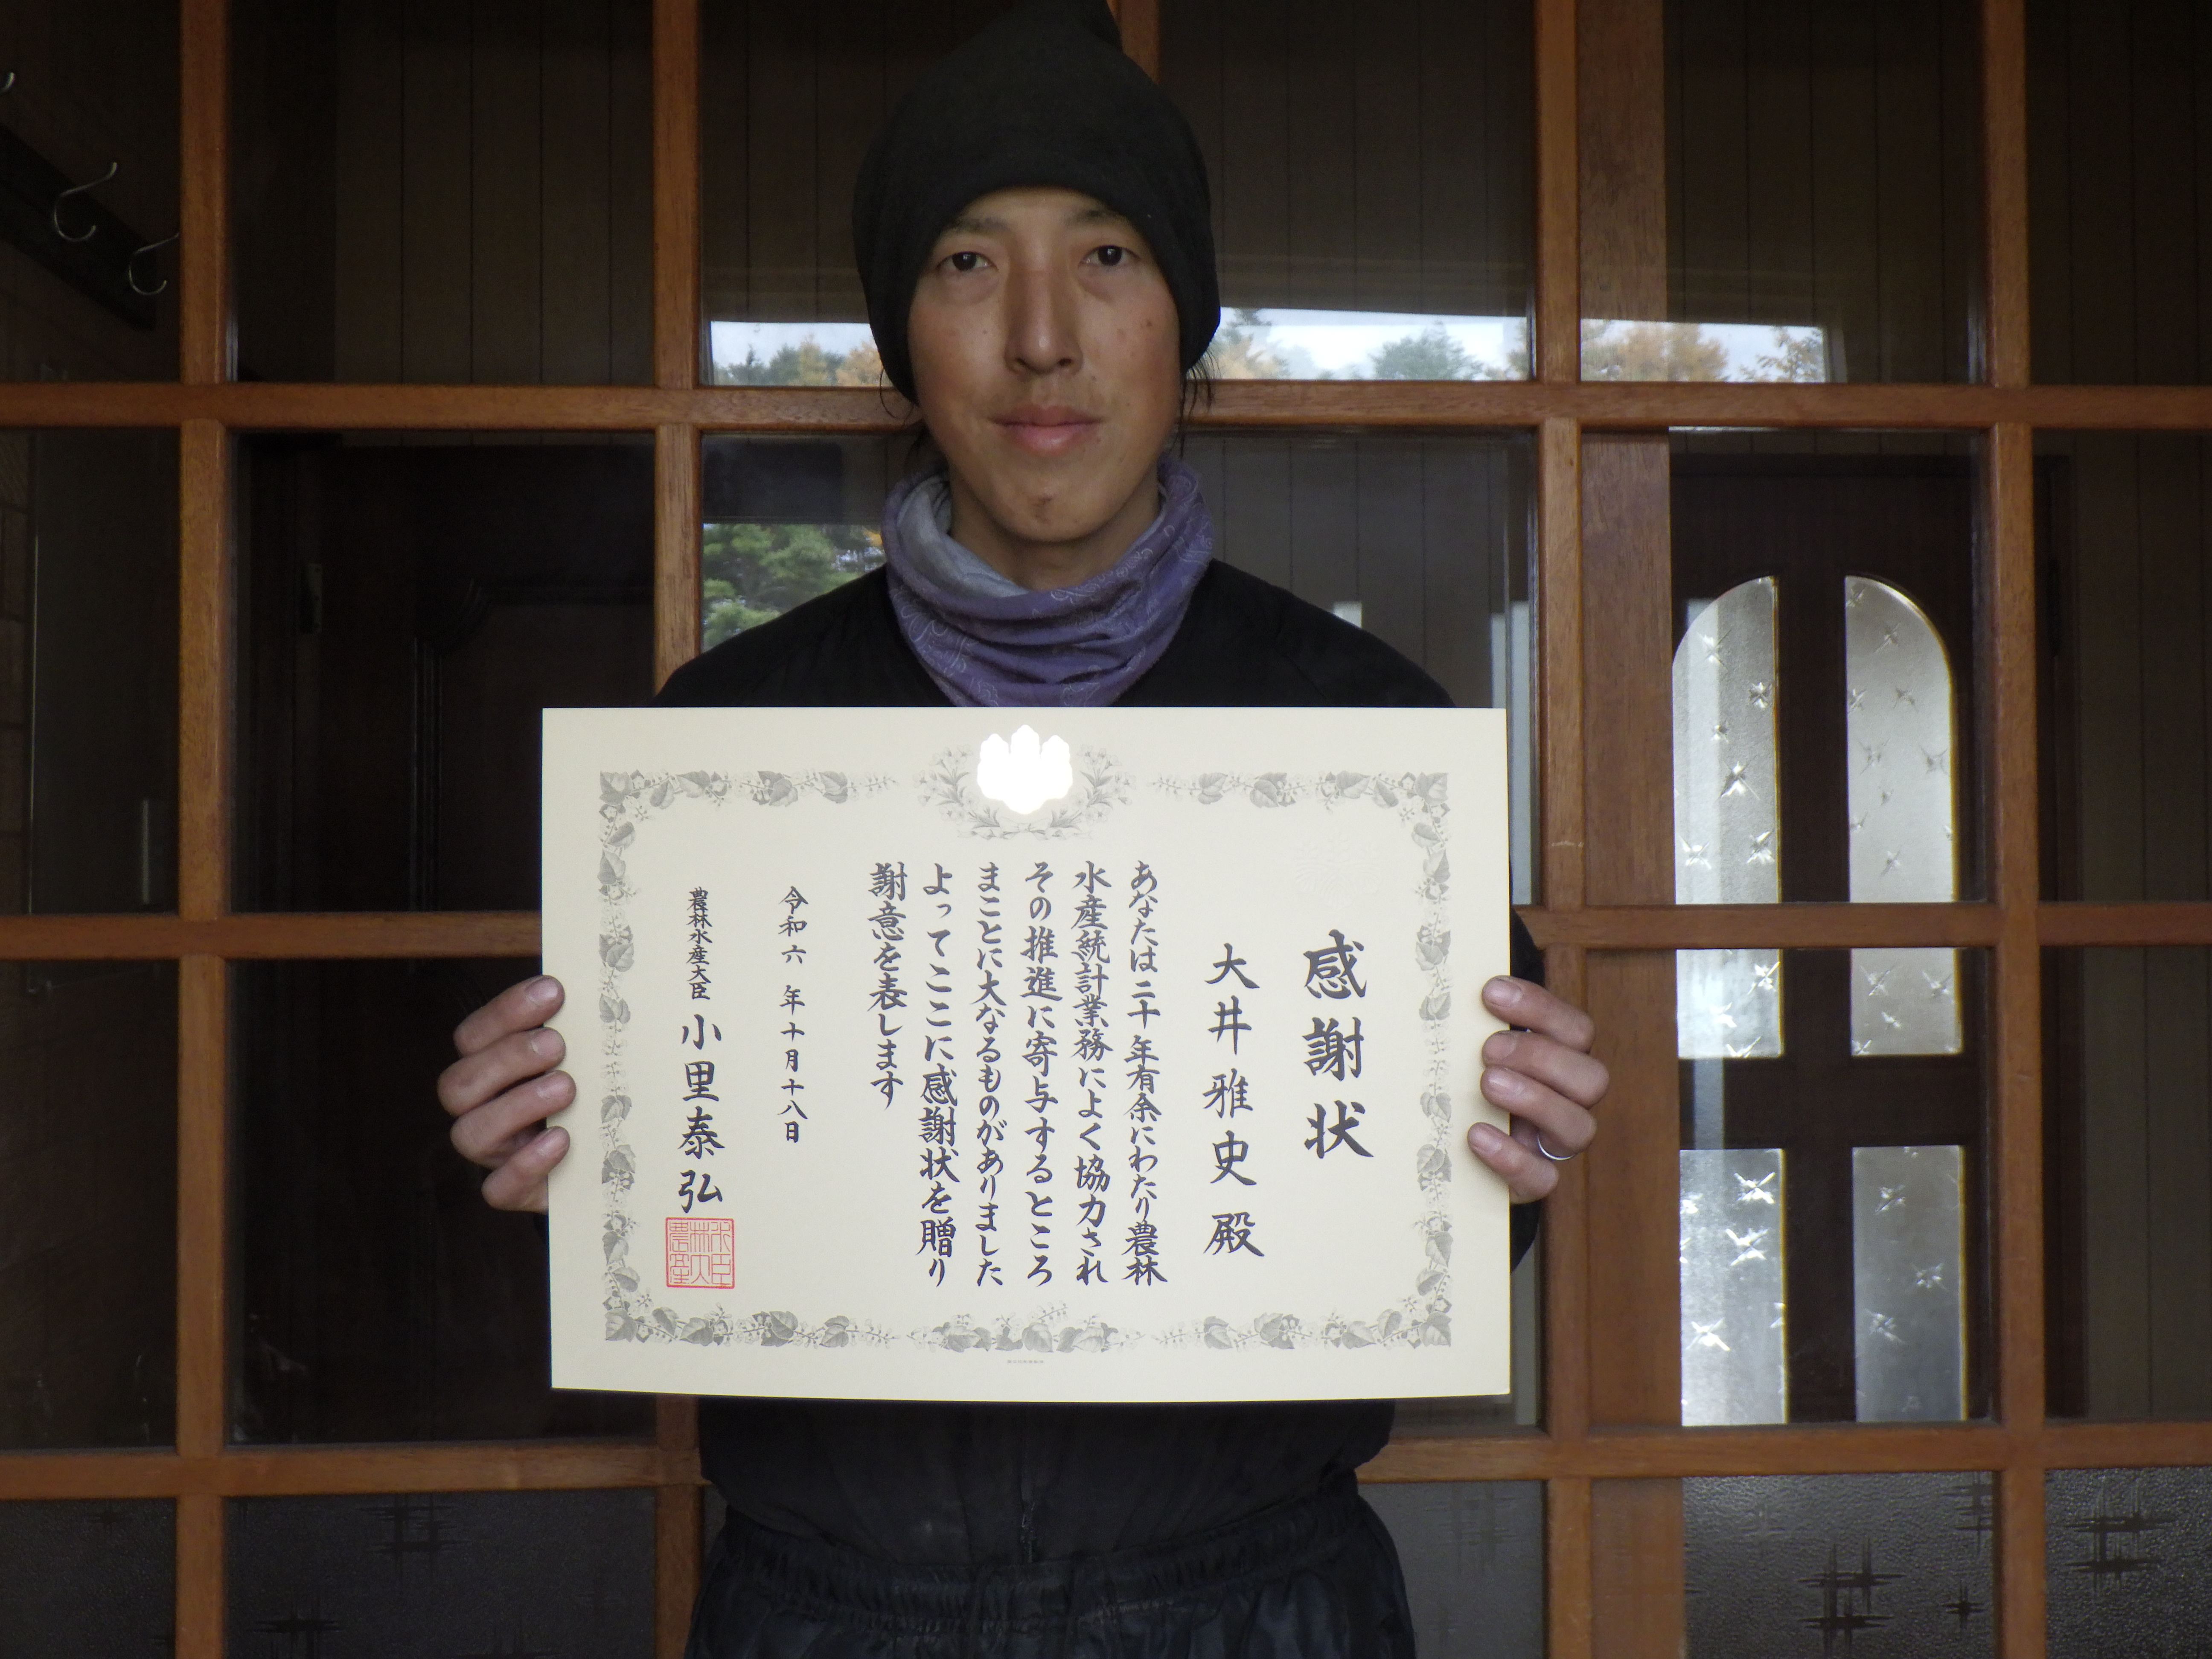 感謝状
大井雅史殿
あなたは二十年有余にわたり農林
水産統計業務によく協力され
その推進に寄与するところ
まことに大なるものがありました
よってここに感謝状を贈り
謝意を表します
令和六年十月十八日
農林水産大臣 小里泰弘